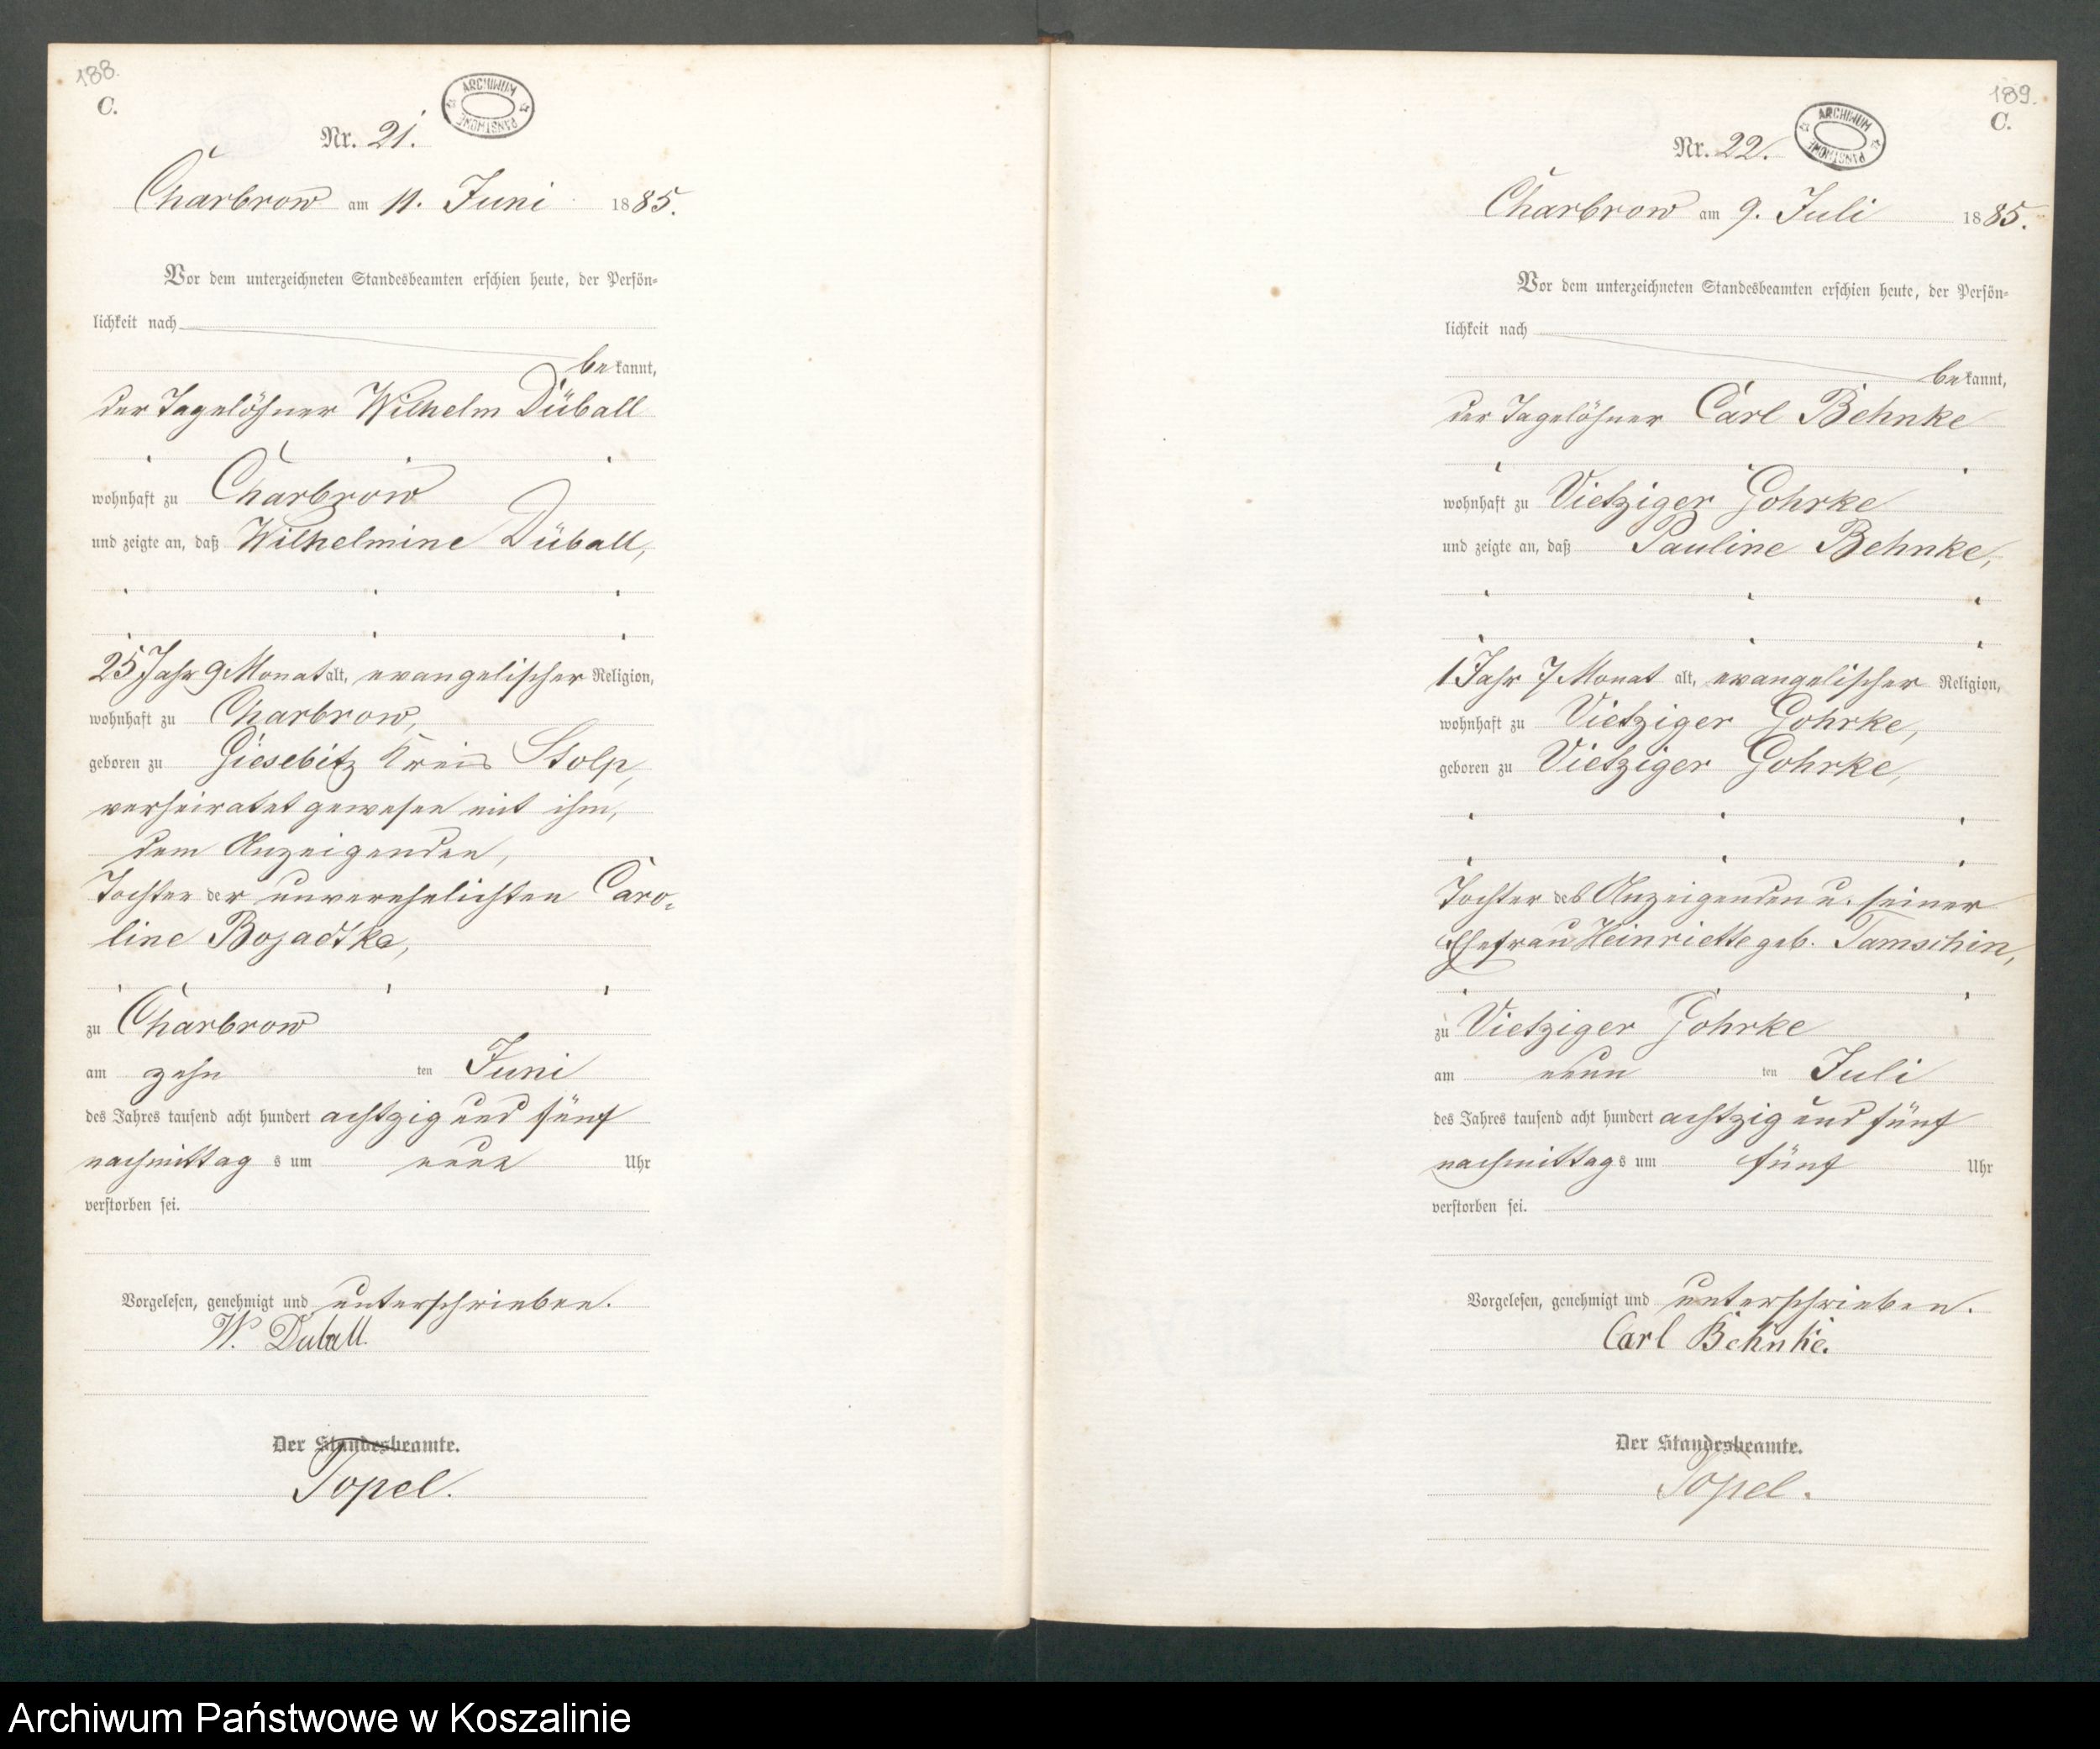 188.
C.
ARCHIWUM PAŃSTWOWE
Nr. 21.
Charbrow am 11. Juni 1885.
Vor dem unterzeichneten Standesbeamten erschien heute, der Persön-
lichkeit nach
bekannt,
der Tagelöhner Wilhelm Düball
wohnhaft zu Charbrow
und zeigte an, daß Wilhelmine Düball,
25 Jahr 9 Monat alt, evangelischer Religion,
wohnhaft zu Charbrow,
geboren zu Giesebitz Kreis Stolp,
verheiratet gewesen mit ihm,
dem Anzeigenden,
Tochter der unverehelichten Caro-
line Bojadtke,
zu Charbrow
am zehn ten Juni
des Jahres tausend acht hundert achtzig und fünf
nachmittag s um neun Uhr
verstorben sei.
Vorgelesen, genehmigt und unterschrieben.
W. Duball.
Der Standesbeamte.
Topel.
189.
C.
ARCHIWUM PAŃSTWOWE
Nr. 22.
Charbrow am 9. Juli 1885.
Vor dem unterzeichneten Standesbeamten erschien heute, der Persön-
lichkeit nach
bekannt,
der Tagelöhner Carl Behnke
wohnhaft zu Vietziger Gohrke
und zeigte an, daß Pauline Behnke,
1 Jahr 7 Monat alt, evangelischer Religion,
wohnhaft zu Vietziger Gohrke,
geboren zu Vietziger Gohrke,
Tochter des Anzeigenden u. seiner
Ehefrau Heinriette geb. Tamschin,
zu Vietziger Gohrke
am neun ten Juli
des Jahres tausend acht hundert achtzig und fünf
nachmittags um fünf Uhr
verstorben sei.
Vorgelesen, genehmigt und unterschrieben.
Carl Behnke.
Der Standesbeamte.
Topel.
Archiwum Państwowe w Koszalinie